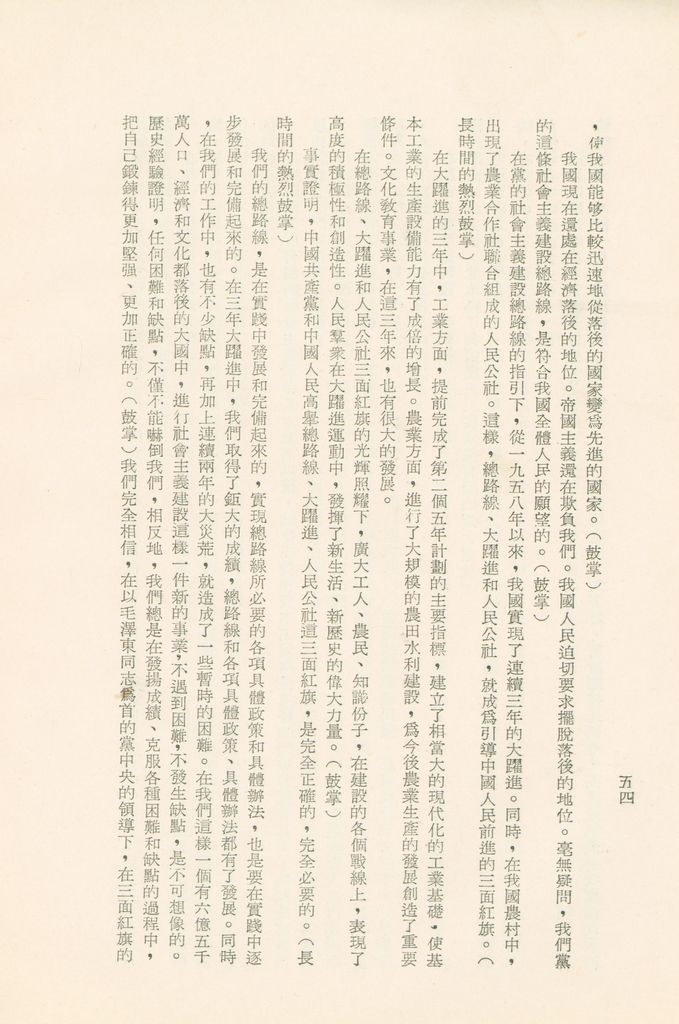 ，使我國能够比較迅速地從落後的國家變爲先進的國家。（鼓掌）
我國現在還處在經濟落後的地位。帝國主義還在欺負我們。我國人民迫切要求擺脫落後的地位。毫無疑問，我們黨
的這條社會主義建設總路線，是符合我國全體人民的願望的。（鼓掌）
在黨的社會主義建設總路線的指引下，從一九五八年以來，我國實現了連續三年的大躍進。同時，在我國農村中，
出現了農業合作社聯合組成的人民公社。這樣，總路線、大躍進和人民公社，就成爲引導中國人民前進的三面紅旗。（
長時間的熱烈鼓掌）
在大躍進的三年中，工業方面，提前完成了第二個五年計劃的主要指標，建立了相當大的現代化的工業基礎，使基
本工業的生產設備能力有了成倍的增長。農業方面，進行了大規模的農田水利建設，爲今後農業生產的發展創造了重要
條件。文化敎育事業，在這三年來，也有很大的發展。
在總路線、大躍進和人民公社三面紅旗的光輝照耀下，廣大工人、農民、知識份子，在建設的各個戰線上，表現了
高度的積極性和創造性。人民羣衆在大躍進運動中，發揮了新生活、新歷史的偉大力量。（鼓掌）
事實證明，中國共產黨和中國人民高舉總路線、大躍進、人民公社這三面紅旗，是完全正確的，完全必要的。（長
時間的熱烈鼓掌）
我們的總路線，是在實踐中發展和完備起來的，實現總路線所必要的各項具體政策和具體辦法，也是要在實踐中逐
步發展和完備起來的。在三年大躍進中，我們取得了鉅大的成績，總路線和各項具體政策、具體辦法都有了發展。同時
，在我們的工作中，也有不少缺點，再加上連續兩年的大災荒，就造成了一些暫時的困難。在我們這樣一個有六億五千
萬人口、經濟和文化都落後的大國中，進行社會主義建設這樣一件新的事業，不遇到困難，不發生缺點，是不可想像的。
歷史經驗證明，任何困難和缺點，不僅不能嚇倒我們，相反地，我們總是在發揚成績、克服各種困難和缺點的過程中，
把自己鍛鍊得更加堅强、更加正確的。（鼓掌）我們完全相信，在以毛澤東同志爲首的黨中央的領導下，在三面紅旗的
五四